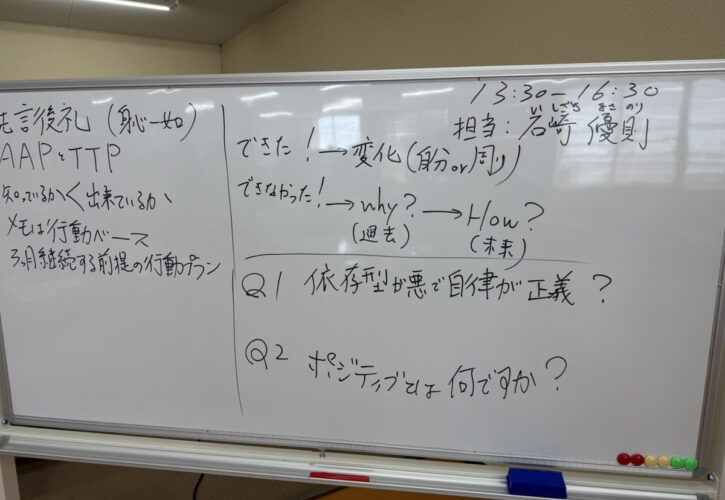 先言後礼 (身心一如)
AAPとTTP
知っているか<出来ているか
メモは行動ベース
3ヵ月継続する前提の行動プラン
13:30-16:30
いしざき まさのり
担当:岩崎 優則
できた!→変化(自分or周り)
できなかった!→why?→How?
(過去) (未来)
Q1 依存型が悪で自律が正義?
Q2 ポジティブとは何ですか?